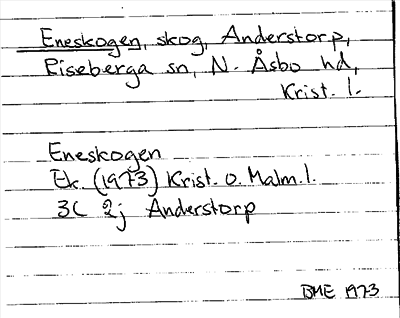 Eneskogen, skog, Anderstorp,
Riseberga sn, N. Åsbo hd,
Krist. l.
Eneskogen
Ek. (1973) Krist. o. Malm. l.
3C 2j Anderstorp
BME 1973